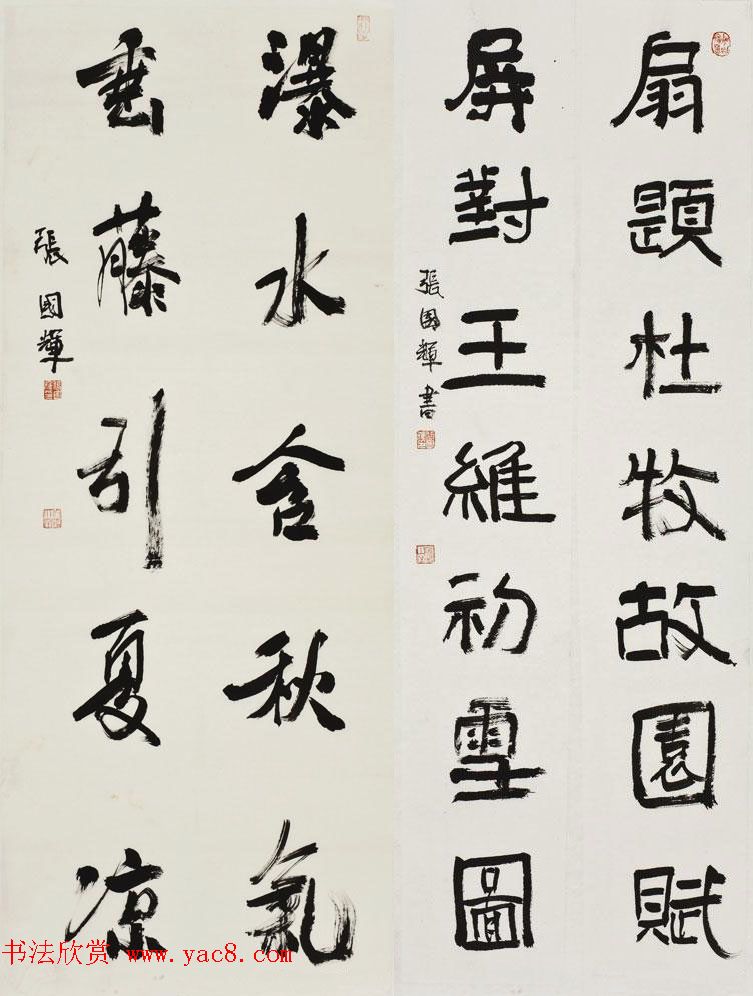 扇題杜牧故園賦
屏對王維初雪圖
張國輝書
瀑水含秋氣
垂藤引夏凉
張國輝
书法欣赏 www.yac8.com